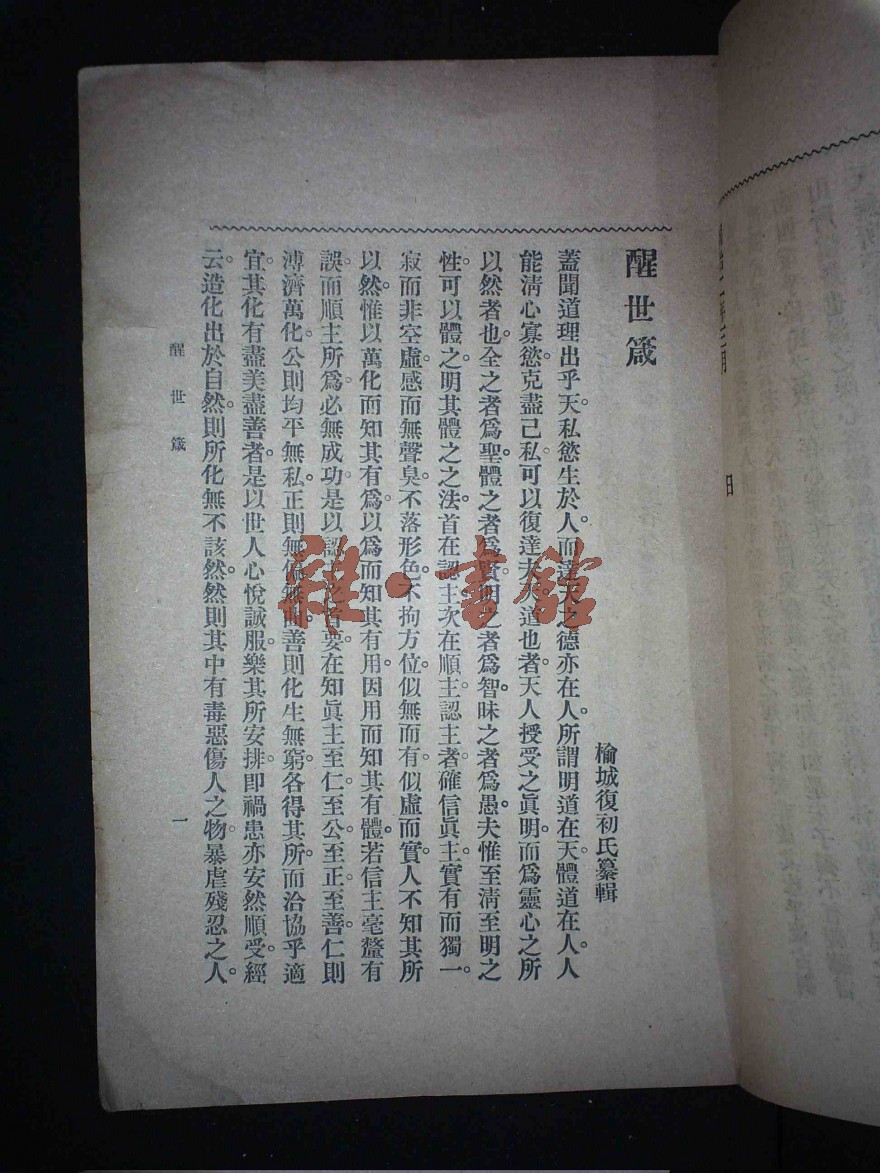 醒世箴
榆城復初氏纂輯
蓋聞道理出乎天。私慾生於人。而達天之德亦在人。所謂明道在天。體道在人。人
能清心寡慾。克盡己私。可以復達夫天道也。者。天人授受之眞明。而爲靈心之所
以然者也。全之者爲聖。體之者爲賢。明之者爲智。昧之者爲愚。夫惟至清至明之
性。可以體之。明其體之之法。首在認主。次在順主。認主者。確信眞主。實有而獨一。
寂而非空虛。感而無聲臭。不落形色。不拘方位。似無而有。似虛而實。人不知其所
以然。惟以萬化而知其有爲。以爲而知其有用。因用而知其有體。若信主毫釐有
誤。而順主所爲。必無成功。是以認主之者。要在知眞主至仁至公至正至善。仁則
溥濟萬化。公則均平無私。正則無偏無曲。善則化生無窮。各得其所。而洽協乎適
宜。其化有盡美盡善者。是以世人心悅誠服。樂其所安排。卽禍患亦安然順受。經
云。造化出於自然。則所化無不該然。然則其中有毒惡傷人之物。暴虐殘忍之人。
醒世箴
一
日
雜·書館